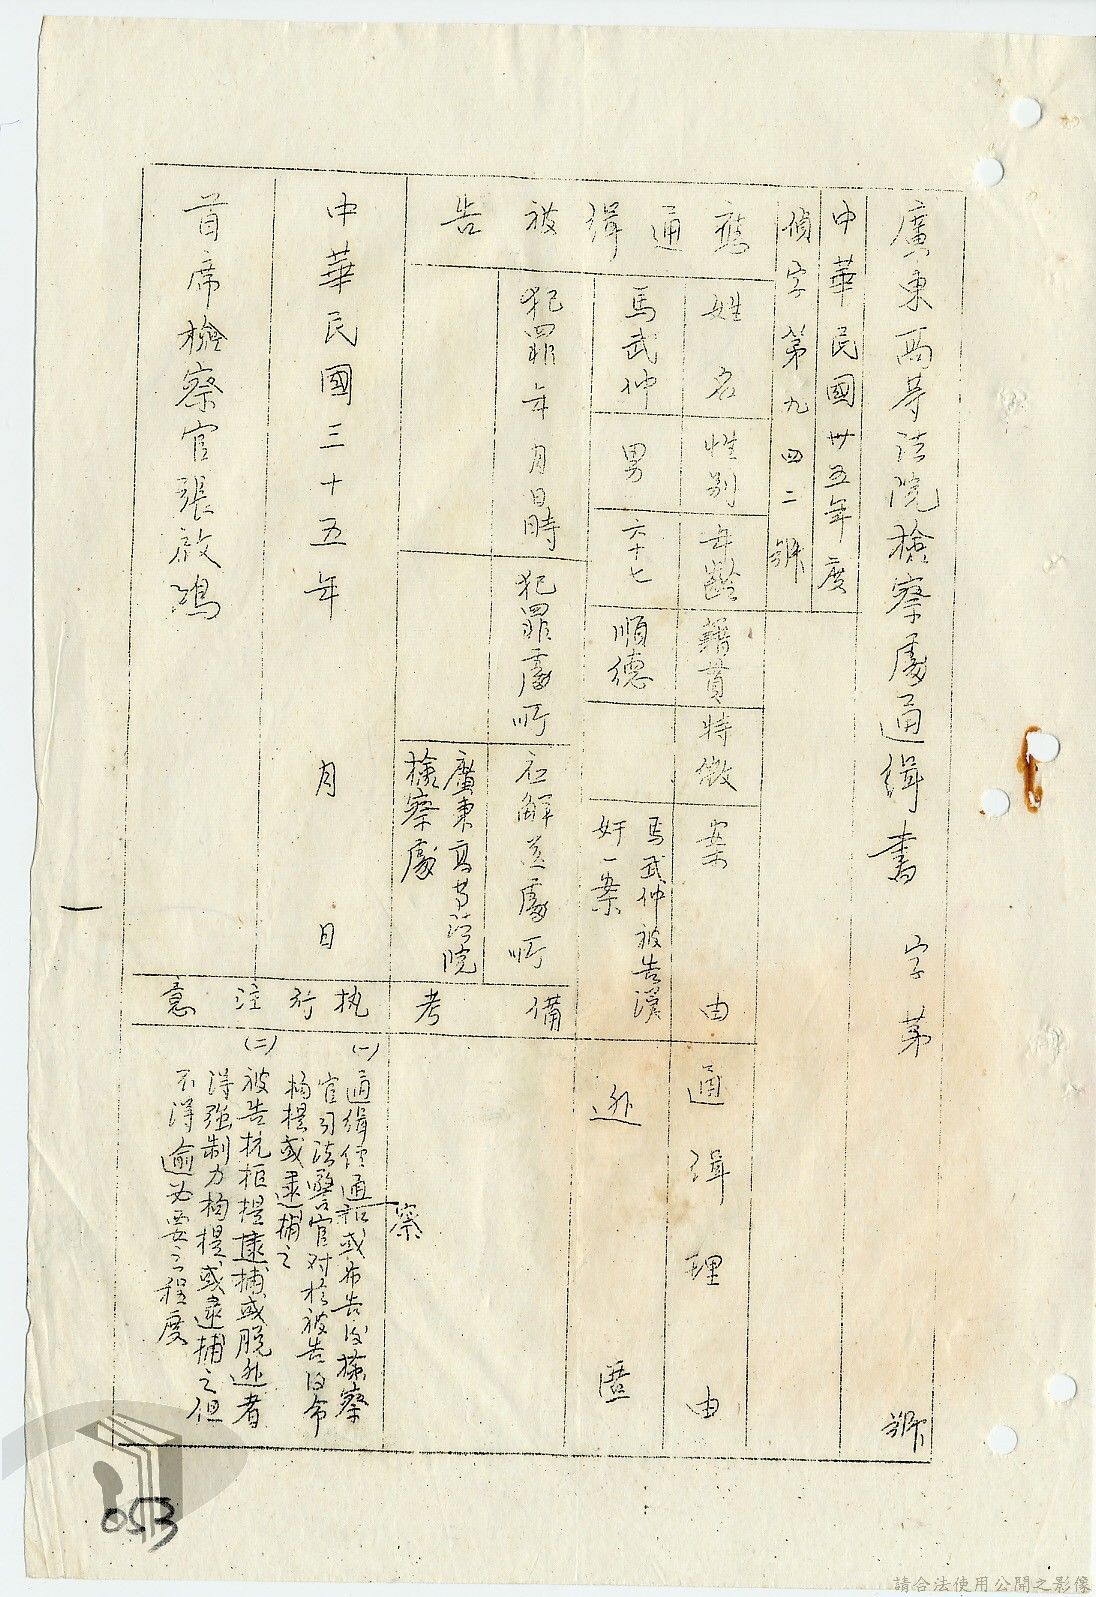 廣東高等法院檢察處通緝書 字第 號
中華民國卅五年度
偵字第九四二號
應通緝被告
姓名
性別
年齡
籍貫
特徵
案由
通緝理由
馬武仲
男
六十七
順德
馬武仲被告漢
奸一案
逃匿
犯罪年月日時
犯罪處所
應解送處所
廣東高等法院
檢察處
備考
中華民國三十五年 月 日
首席檢察官張啟鴻
執行注意
(一)通緝經通知或布告後檢察
官司法警察官對於被告得命
拘提或逮捕之
(二)被告抗拒拘提逮捕或脫逃者
得強制力拘提或逮捕之但
不得逾必要之程度
053
請合法使用公開之影像